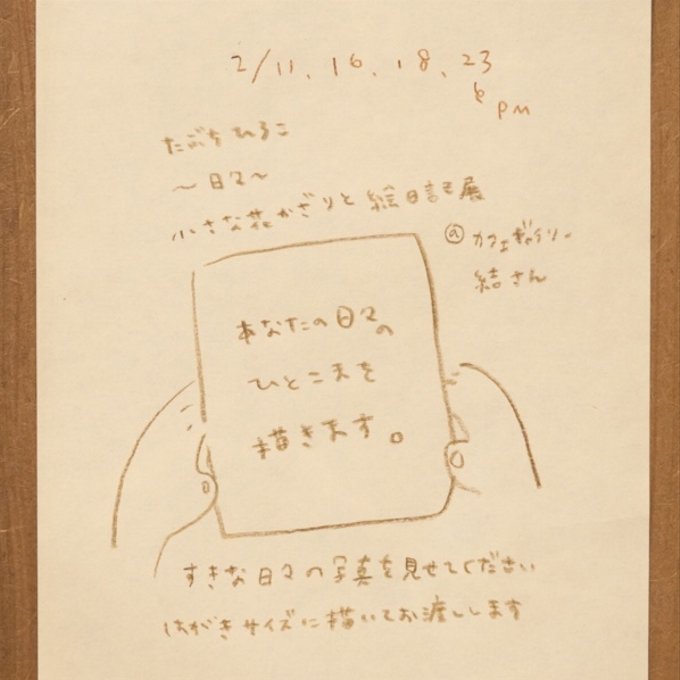 2/11、16、18、23
& PM
たぶちひろこ
〜日々〜
小さな花かざりと絵日記展
@カフェギャラリー
結さん
あなたの日々の
ひとこまを
描きます。
すきな日々の写真を見せてください
はがきサイズに描いてお渡しします